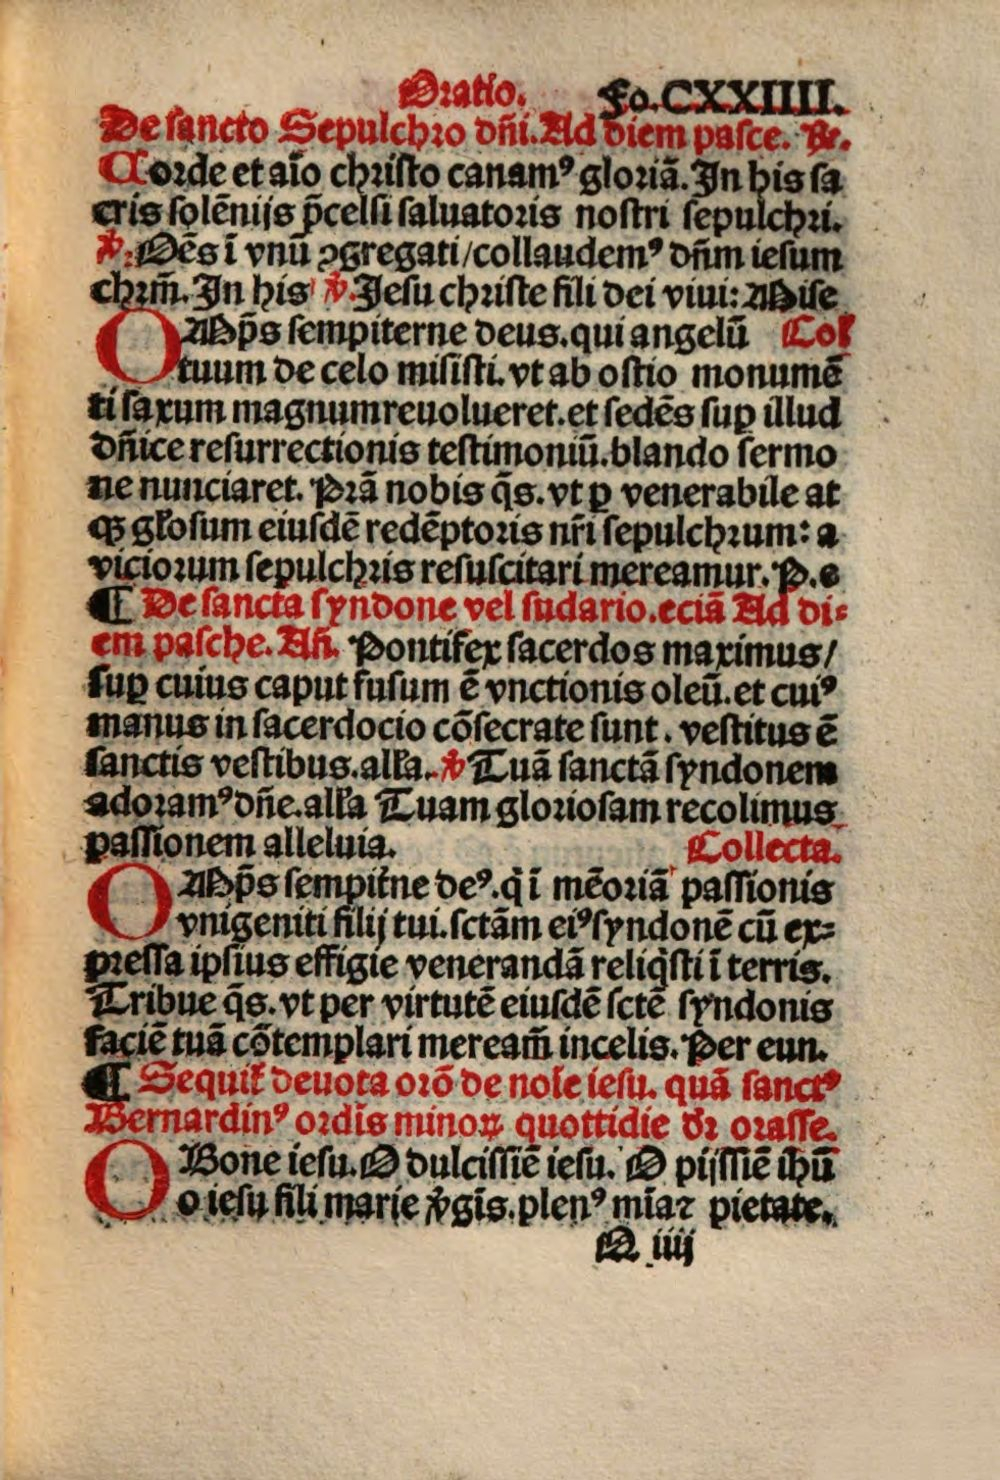 Oratio. Fo.CXXIIII.
De sancto Sepulchro dñi. Ad diem pasce. R̃.
Corde et aı̃o christo canamꝰ gloriã. In his sa
cris solẽnijs p̃celsi saluatoris nostri sepulchri.
℣. Oẽs ĩ vnũ ꝯgregati/collaudemꝰ dñm iesum
chrm̃. In his ℣. Jesu christe fili dei viui: Mise
OMp̃s sempiterne deus. qui angelũ Col̃
tuum de celo misisti. vt ab ostio monumẽ
ti saxum magnum reuolueret. et sedẽs suꝑ illud
dñice resurrectionis testimoniũ. blando sermo
ne nunciaret. Prã nobis q̃s. vt ꝑ venerabile at
qꝫ gl̃osum eiusdẽ redẽptoris nr̃i sepulchrum: a
viciorum sepulchris resuscitari mereamur. P. e
¶ De sancta syndone vel sudario. eciã Ad di⸗
em pasche. Añ. Pontifex sacerdos maximus/
suꝑ cuius caput fusum ẽ vnctionis oleũ. et cuiꝰ
manus in sacerdocio cõsecrate sunt. vestitus ẽ
sanctis vestibus. all̃a. ℣ Tuã sanctã syndonem
adoramꝰ dñe. all̃a Tuam gloriosam recolimus
passionem alleluia. Collecta.
OMp̃s sempit̃ne deꝰ. q̃ ĩ mẽoriã passionis
vnigeniti filij tui. sctãm eiꝰ syndonẽ cũ ex⸗
pressa ipsius effigie venerandã reliq̃sti ĩ terris.
Tribue q̃s. vt per virtutẽ eiusdẽ sctẽ syndonis
faciẽ tuã cõtemplari meream̃ in celis. Per eun.
¶ Sequit̃ deuota orõ de noı̃e iesu. quã sanctꝰ
Bernardinꝰ ordı̃s minoꝝ quottidie dr̃ orasse.
O Bone iesu. O dulcissı̃e iesu. O pijssı̃e ihũ
o iesu fili marie ṽgı̃s. plenꝰ mı̃a ⁊ pietate.
Q iiij